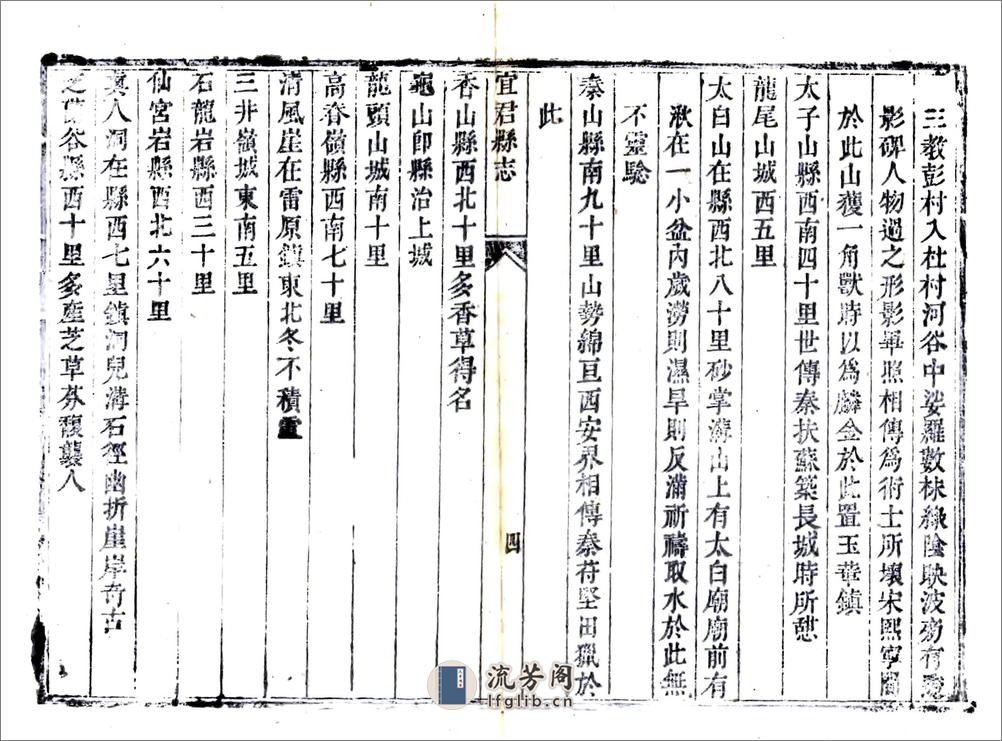 三教彭村入杜村河谷中娑羅數株綠陰映波旁有
影碑人物過之形影畢照相傳爲術士所壞宋熙寧間
於此山獲一角獸時以爲麟金於此置玉華鎮
太子山縣西南四十里世傳秦扶蘇築長城時所憩
龍尾山城西五里
太白山在縣西北八十里砂掌溝山上有太白廟廟前有
湫在一小盆內歲澇則濕旱則反滿祈禱取水於此無
不靈驗
秦山縣南九十里山勢綿亘西安界相傳秦苻堅田獵於
此
宜君縣志
四
香山縣西北十里多香草得名
龜山卽縣治上城
龍頭山城南十里
高脊嶺縣西南七十里
清風崖在雷原鎮東北冬不積雪
三井嶺城東南五里
石龍岩縣西三十里
仙宮岩縣西北六十里
眞人洞在縣西七里鎮洞兒溝石徑幽折崖岸奇古
之 谷縣西十里多產芝草芬馥襲人
流芳阁
lfglib.cn